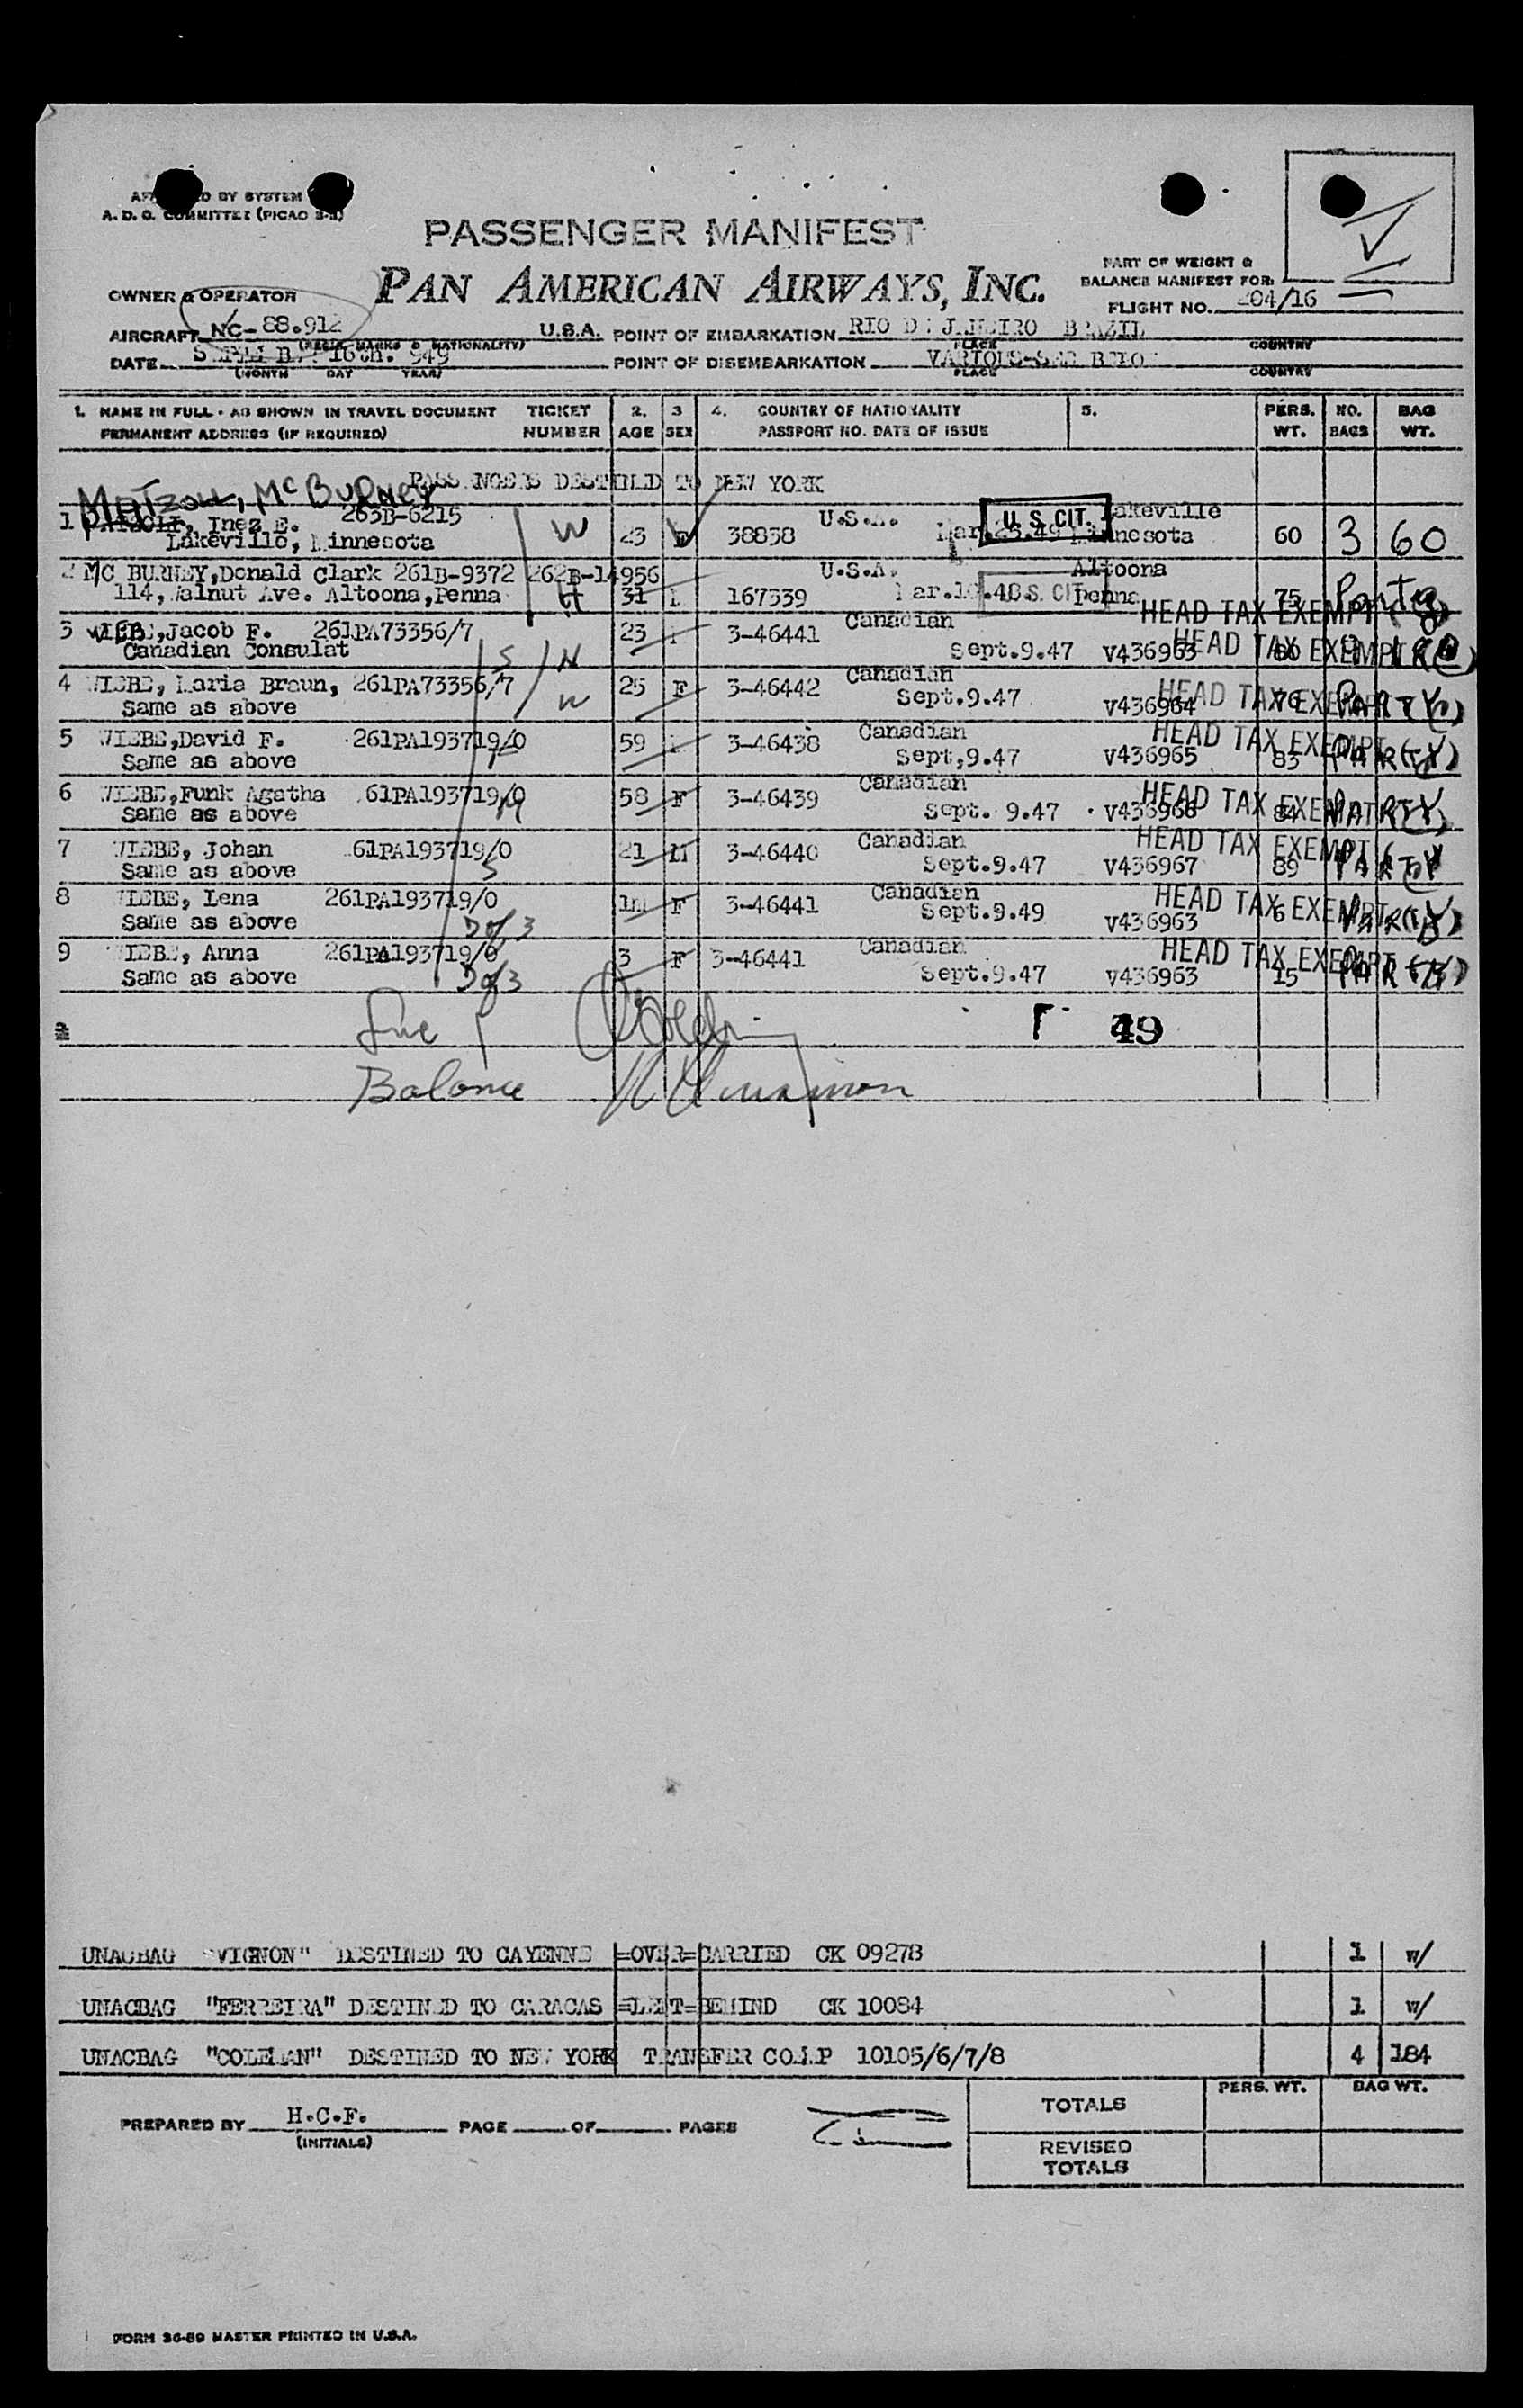 A. D. O. COMMITTEE (PICAO
PASSENGER MANIFEST
PAN AMERICAN AIRWAYS, INC.
PART OF WEIGHT &
BALANCE MANIFEST FOR:
FLIGHT NO. 204/16
OWNER & OPERATOR
AIRCRAFT NC- 88.912 U.S.A. POINT OF EMBARKATION RIO D JANEIRO BRAZIL
(REGIS. MARKS & NATIONALITY) PLACE COUNTRY
DATE 16th. 949 POINT OF DISEMBARKATION VARIOUS-SEE BELO
(MONTH DAY YEAR) PLACE COUNTRY
1. NAME IN FULL - AS SHOWN IN TRAVEL DOCUMENT TICKET 2. 3 4. COUNTRY OF NATIONALITY 5. PERS. NO. BAG
PERMANENT ADDRESS (IF REQUIRED) NUMBER AGE SEX PASSPORT NO. DATE OF ISSUE WT. BAGS WT.
PASSENGERS DESTINED TO NEW YORK
McBurney
1 Inez E. 263B-6215 W 23 F 38838 U.S.A. Mar.25.49 U. S. CIT. Lakeville 60 3 60
Lakeville, Minnesota Minnesota
2 MC BURNEY, Donald Clark 261B-9372 262B-14956 U.S.A. Altoona
114, Walnut Ave. Altoona, Penna 31 167339 U.S. CIT Penna 75 Party
HEAD TAX EXEMPT
3 WIEBE, Jacob F. 261PA73356/7 23 3-46441 Canadian HEAD TAX EXEMPT
Canadian Consulat S N Sept.9.47 V436963
4 WIEBE, Maria Braun, 261PA73356/7 W 25 F 3-46442 Canadian HEAD TAX EXEMPT
Same as above Sept.9.47 V436964 76 PARTY
5 WIEBE, David F. 261PA193719/0 59 3-46438 Canadian HEAD TAX EXEMPT
Same as above Sept,9.47 V436965 83 PARTY
6 WIEBE, Funk Agatha 61PA193719/0 58 F 3-46439 Canadian HEAD TAX EXEMPT
Same as above Sept. 9.47 V436966 84 PARTY
7 WIEBE, Johan 61PA193719/0 21 M 3-46440 Canadian HEAD TAX EXEMPT
Same as above S Sept.9.47 V436967 89 PARTY
8 WIEBE, Lena 261PA193719/0 F 3-46441 Canadian HEAD TAX EXEMPT
Same as above Sept.9.49 V436963 6 PARTY
9 WIEBE, Anna 261PA193719/0 3 F 3-46441 Canadian HEAD TAX EXEMPT
Same as above Sept.9.47 V436963 15 PARTY
49
Balance
UNACBAG "VIGNON" DESTINED TO CAYENNE =OVER=CARRIED CK 09278 1 w/
UNACBAG "FERREIRA" DESTINED TO CARACAS =LEFT=BEHIND CK 10084 1 w/
UNACBAG "COLEMAN" DESTINED TO NEW YORK TRANSFER COMP 10105/6/7/8 4 184
PERS. WT. BAG WT.
TOTALS
PREPARED BY H.C.F. PAGE OF PAGES
(INITIALS)
REVISED
TOTALS
FORM 36-89 MASTER PRINTED IN U.S.A.